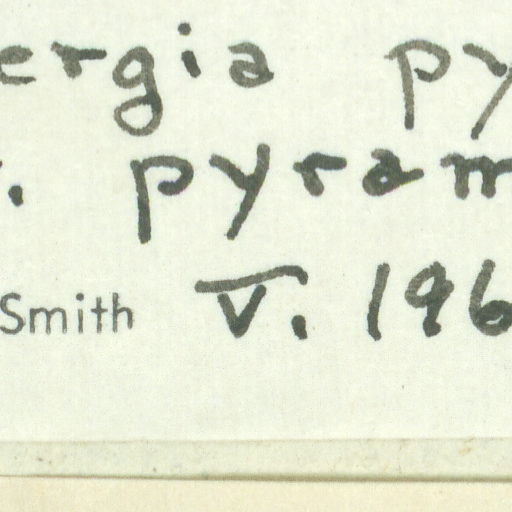 ergia py
. pyram
Smith V. 196